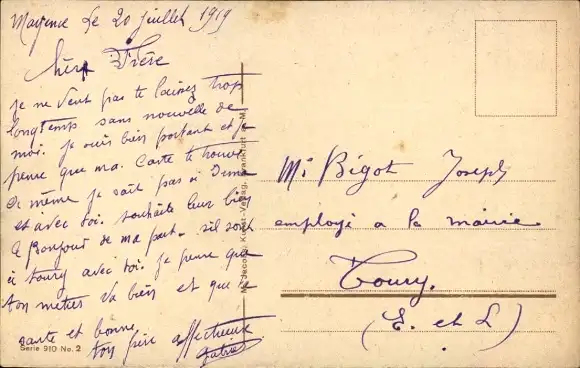 Mayence Le 20 juillet 1919
chèr Frère
je ne veut pas te laissez trop
longtemps sans nouvelle de
moi. je suis bien portant et je
pense que ma carte te trouve
de même je sait pas si
et avec toi. souhaite leur bien
le Bonjour de ma part. s'il sont
à toury avec toi. je pense que
ton metier va bien et que la
sante et bonne,
ton frère affectueux
Gabriel
Serie 910 No. 2
Kunst-Verlag, Frankfurt a. M.
Mr Bigot Joseph
employé a la mairie
Toury.
(E. et L)